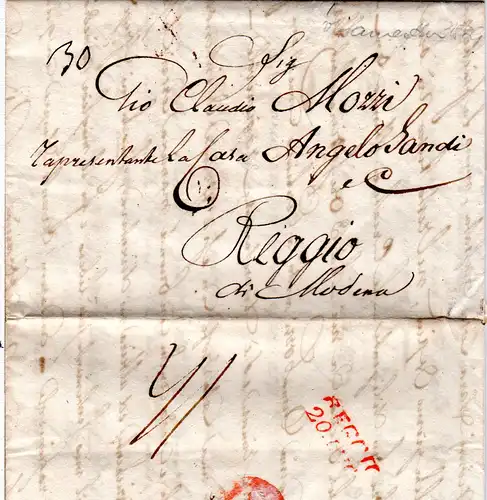 30
Sig
Tio Claudio Mozzi
Rapresentante La Casa Angelo Sandi
e C
Reggio
di Modena
REGGIO
20